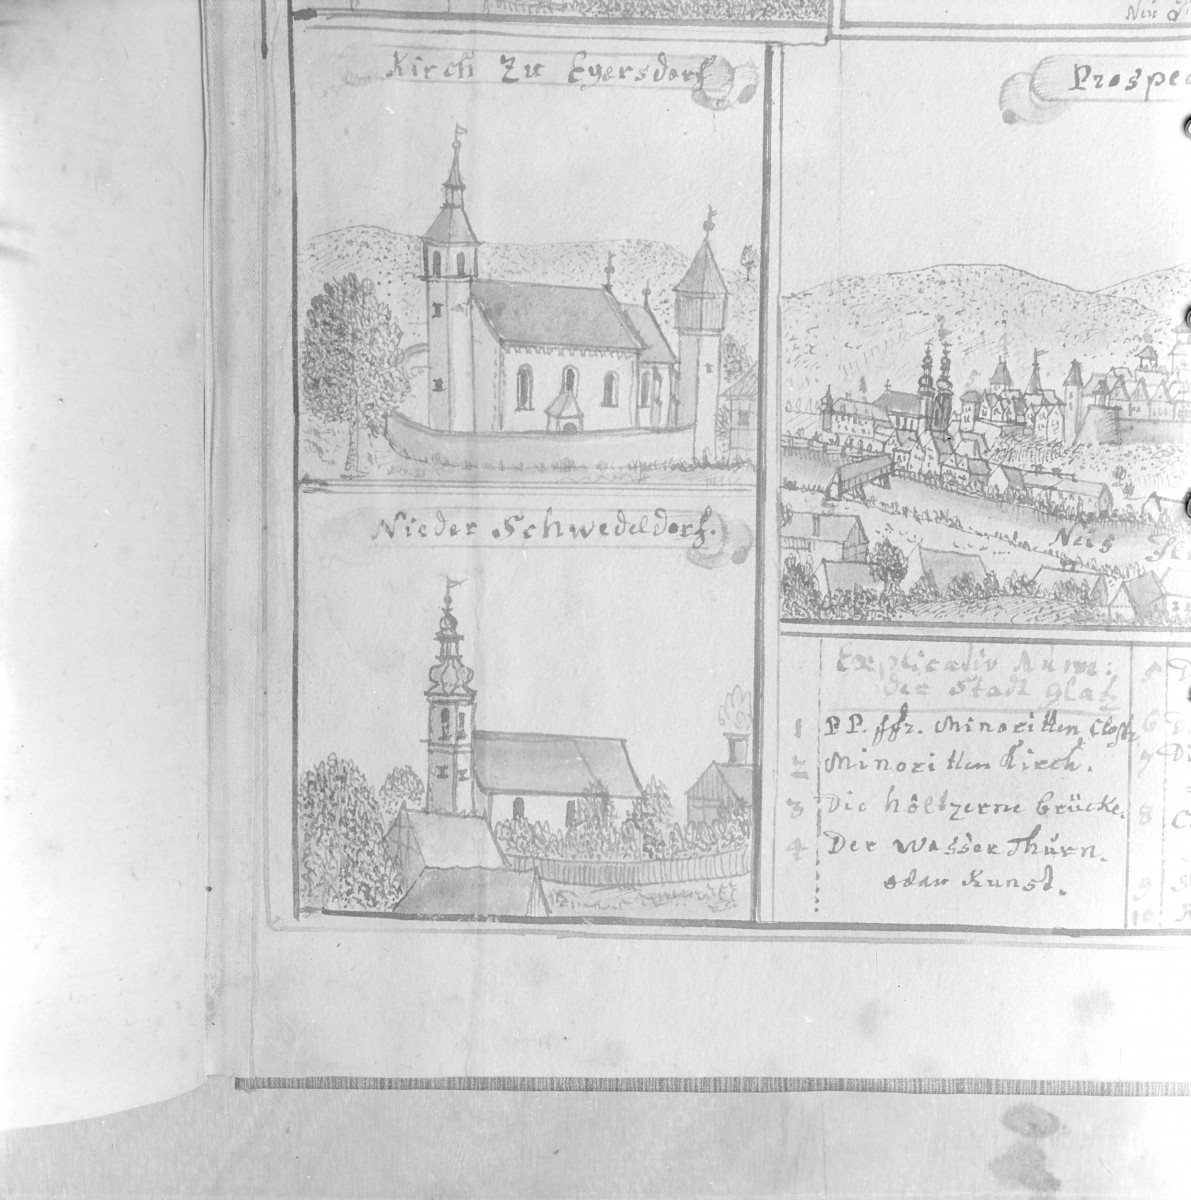 Kirch Zu Eyersdorf
Nieder Schwedeldorf.
Prospec
Neis
Explicatio Num:
der Stadt Glatz
1 PP. ffr. Minoritten Closte
2 Minoritten Kirch.
3 Die höltzerne Brücke.
4 Der Wasser Thurn.
oder Kunst.
5
6
7
8
9
10